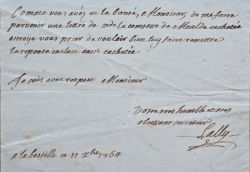 Comme vous avés eu la bonté, Monsieur, de me faire
parvenir une lettre de mde la comtesse de Maulde cachetée
envoye vous prier de vouloir bien luy faire remettre
la reponse incluse aussi cachetée
Je suis avec respect Monsieur
Votre tres humble et tres
obeissant serviteur
Lally
a la bastille ce 11 Xbre 1764